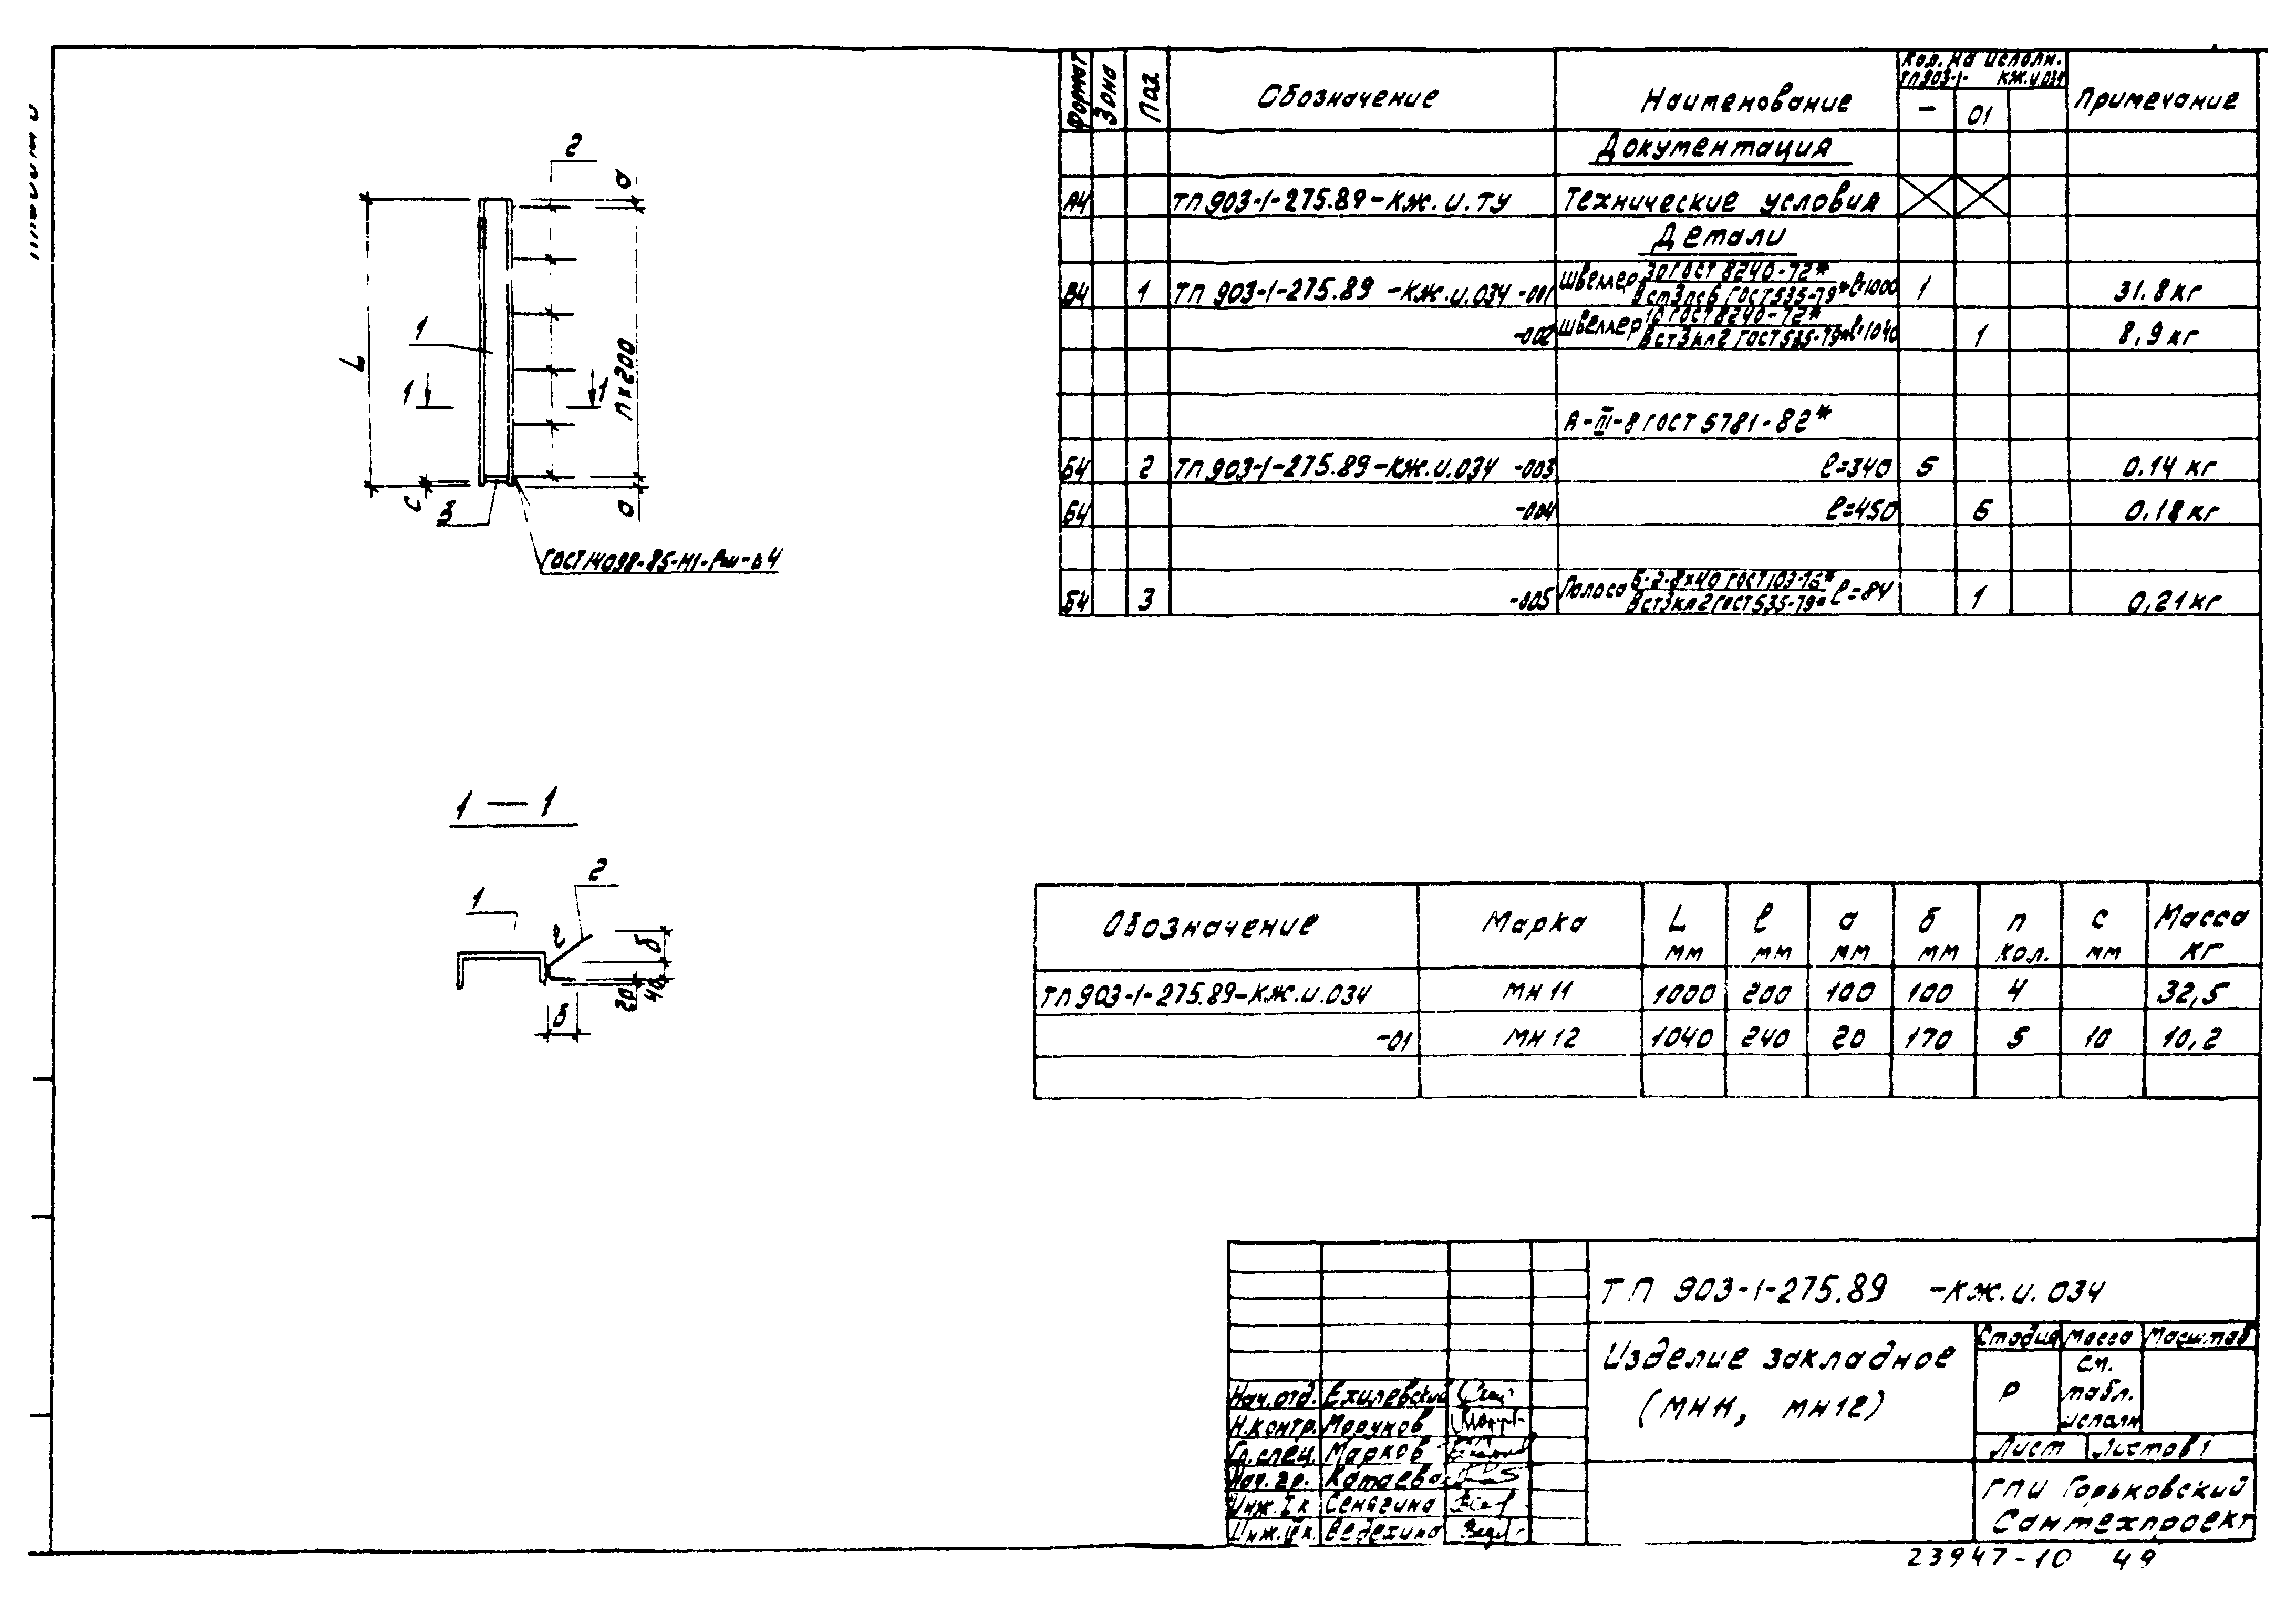 Формат
Зона
Поз
Обозначение
Наименование
Кол. на исполн.
ТП903-1- КЖ.И.034
– 01
Примечание
Документация
А4 ТП903-1-275.89-КЖ.И.ТУ Технические условия
Детали
Б4 1 ТП 903-1-275.89 -КЖ.И.034 -001 Швеллер 30 ГОСТ 8240-72* / ВСт3пс6 ГОСТ535-79* ℓ=1000 1 31.8 кг
-002 Швеллер 10 ГОСТ 8240-72* / ВСт3кп2 ГОСТ535-79* ℓ=1040 1 8,9 кг
А-III-8 ГОСТ 5781-82*
Б4 2 ТП903-1-275.89-КЖ.И.034 -003 ℓ=340 5 0.14 кг
Б4 -004 ℓ=450 6 0,18 кг
Б4 3 -005 Полоса Б-2-8х40 ГОСТ103-76* / ВСт3кп2 ГОСТ535-79* ℓ=84 1 0,21 кг
2
а
L
1
1 1
n х 200
с
3
а
ГОСТ14098-85-Н1-Рш-∆4
1 — 1
1
2
ℓ
б
40
20
б
Обозначение Марка L мм ℓ мм а мм б мм n кол. с мм Масса кг
ТП903-1-275.89-КЖ.И.034 МН 11 1000 200 100 100 4 32,5
-01 МН 12 1040 240 20 170 5 10 10,2
ТП 903-1-275.89 -КЖ.И.034
Изделие закладное
(МН11, МН12)
Стадия Масса Масштаб
Р
см.
табл.
исполн
Лист Листов 1
ГПИ Горьковский
Сантехпроект
Нач.отд. Ехилевский
Н.контр. Морунов
Гл.спец. Марков
Нач.гр. Катаева
Инж. I к Сенягина
Инж. II к. Ведехина
23947-10 49